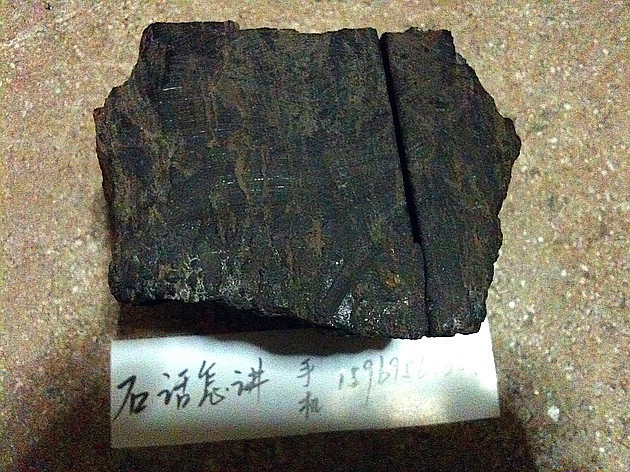 石话怎讲 手机 1596956